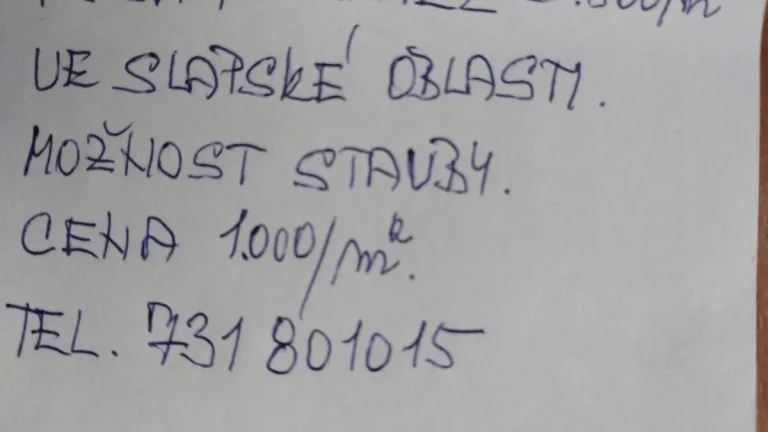 VE SLAPSKÉ OBLASTI.
MOŽNOST STAVBY.
CENA 1.000/m².
TEL. 731 801015